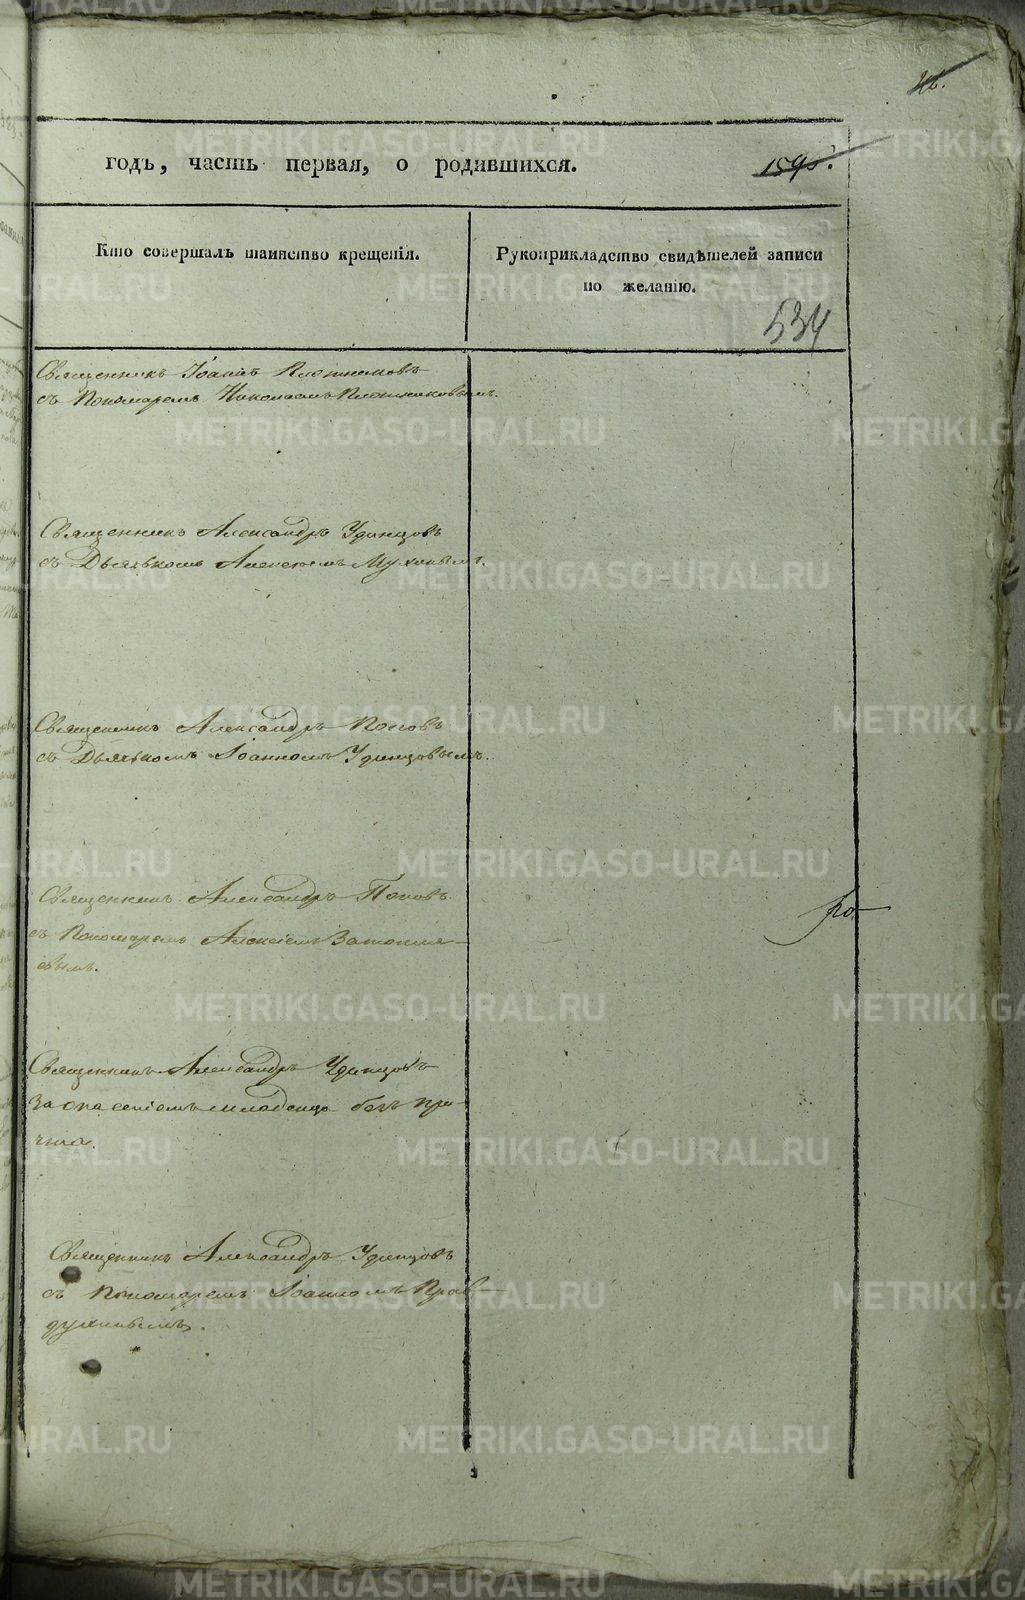 46.
годъ, часть первая, о родившихся.
1595.
Кто совершалъ таинство крещенія.
Рукоприкладство свидѣтелей записи
по желанію.
534
Священникъ Іоаннъ Плотниковъ
съ Пономаремъ Николаемъ Плотниковымъ.
Священникъ Александръ Удинцовъ
съ Дьячкомъ Алексѣемъ Мухинымъ.
Священникъ Александръ Поповъ
съ Дьячкомъ Іоанномъ Удинцовымъ.
Священникъ Александръ Поповъ
съ Пономаремъ Алексѣемъ Затопля-
евымъ.
Священникъ Александръ Удинцовъ
за опасеніемъ младенца безъ при-
чта.
Священникъ Александръ Удинцовъ
съ Пономаремъ Іоанномъ Прав-
духинымъ.
METRIKI.GASO-URAL.RU